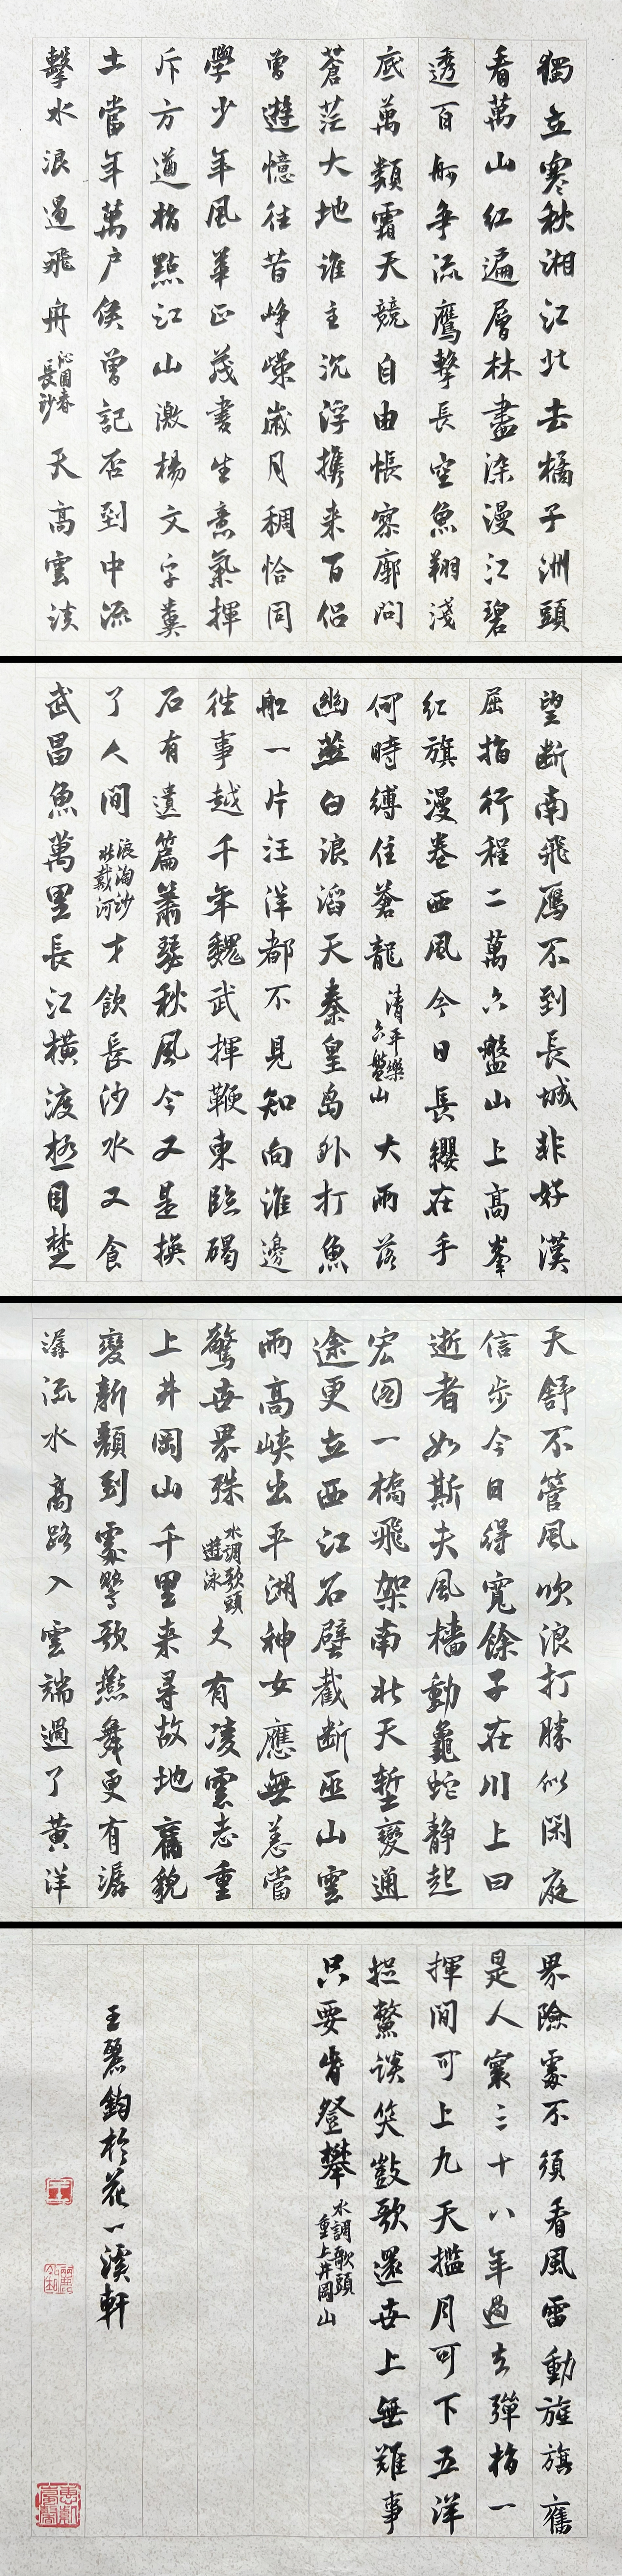 獨立寒秋湘江北去橘子洲頭
看萬山紅遍層林盡染漫江碧
透百舸爭流鷹擊長空魚翔淺
底萬類霜天競自由悵寥廓問
蒼茫大地誰主沉浮攜來百侶
曾遊憶往昔崢嶸歲月稠恰同
學少年風華正茂書生意氣揮
斥方遒指點江山激揚文字糞
土當年萬戶侯曾記否到中流
擊水浪遏飛舟沁園春長沙天高雲淡
望斷南飛雁不到長城非好漢
屈指行程二萬六盤山上高峯
紅旗漫卷西風今日長纓在手
何時縛住蒼龍清平樂六盤山大雨落
幽燕白浪滔天秦皇島外打魚
船一片汪洋都不見知向誰邊
往事越千年魏武揮鞭東臨碣
石有遺篇蕭瑟秋風今又是換
了人間浪淘沙北戴河才飲長沙水又食
武昌魚萬里長江橫渡極目楚
天舒不管風吹浪打勝似閑庭
信步今日得寬餘子在川上曰
逝者如斯夫風檣動龜蛇靜起
宏图一橋飛架南北天塹變通
途更立西江石壁截斷巫山雲
雨高峽出平湖神女應無恙當
驚世界殊水調歌頭遊泳久有凌雲志重
上井岡山千里來尋故地舊貌
變新顏到處鶯歌燕舞更有潺
潺流水高路入雲端過了黃洋
界險處不須看風雷動旌旗奮
是人寰三十八年過去彈指一
揮間可上九天攬月可下五洋
捉鱉談笑凱歌還世上無難事
只要肯登攀水調歌頭重上井岡山
王麗鈞於花一溪軒